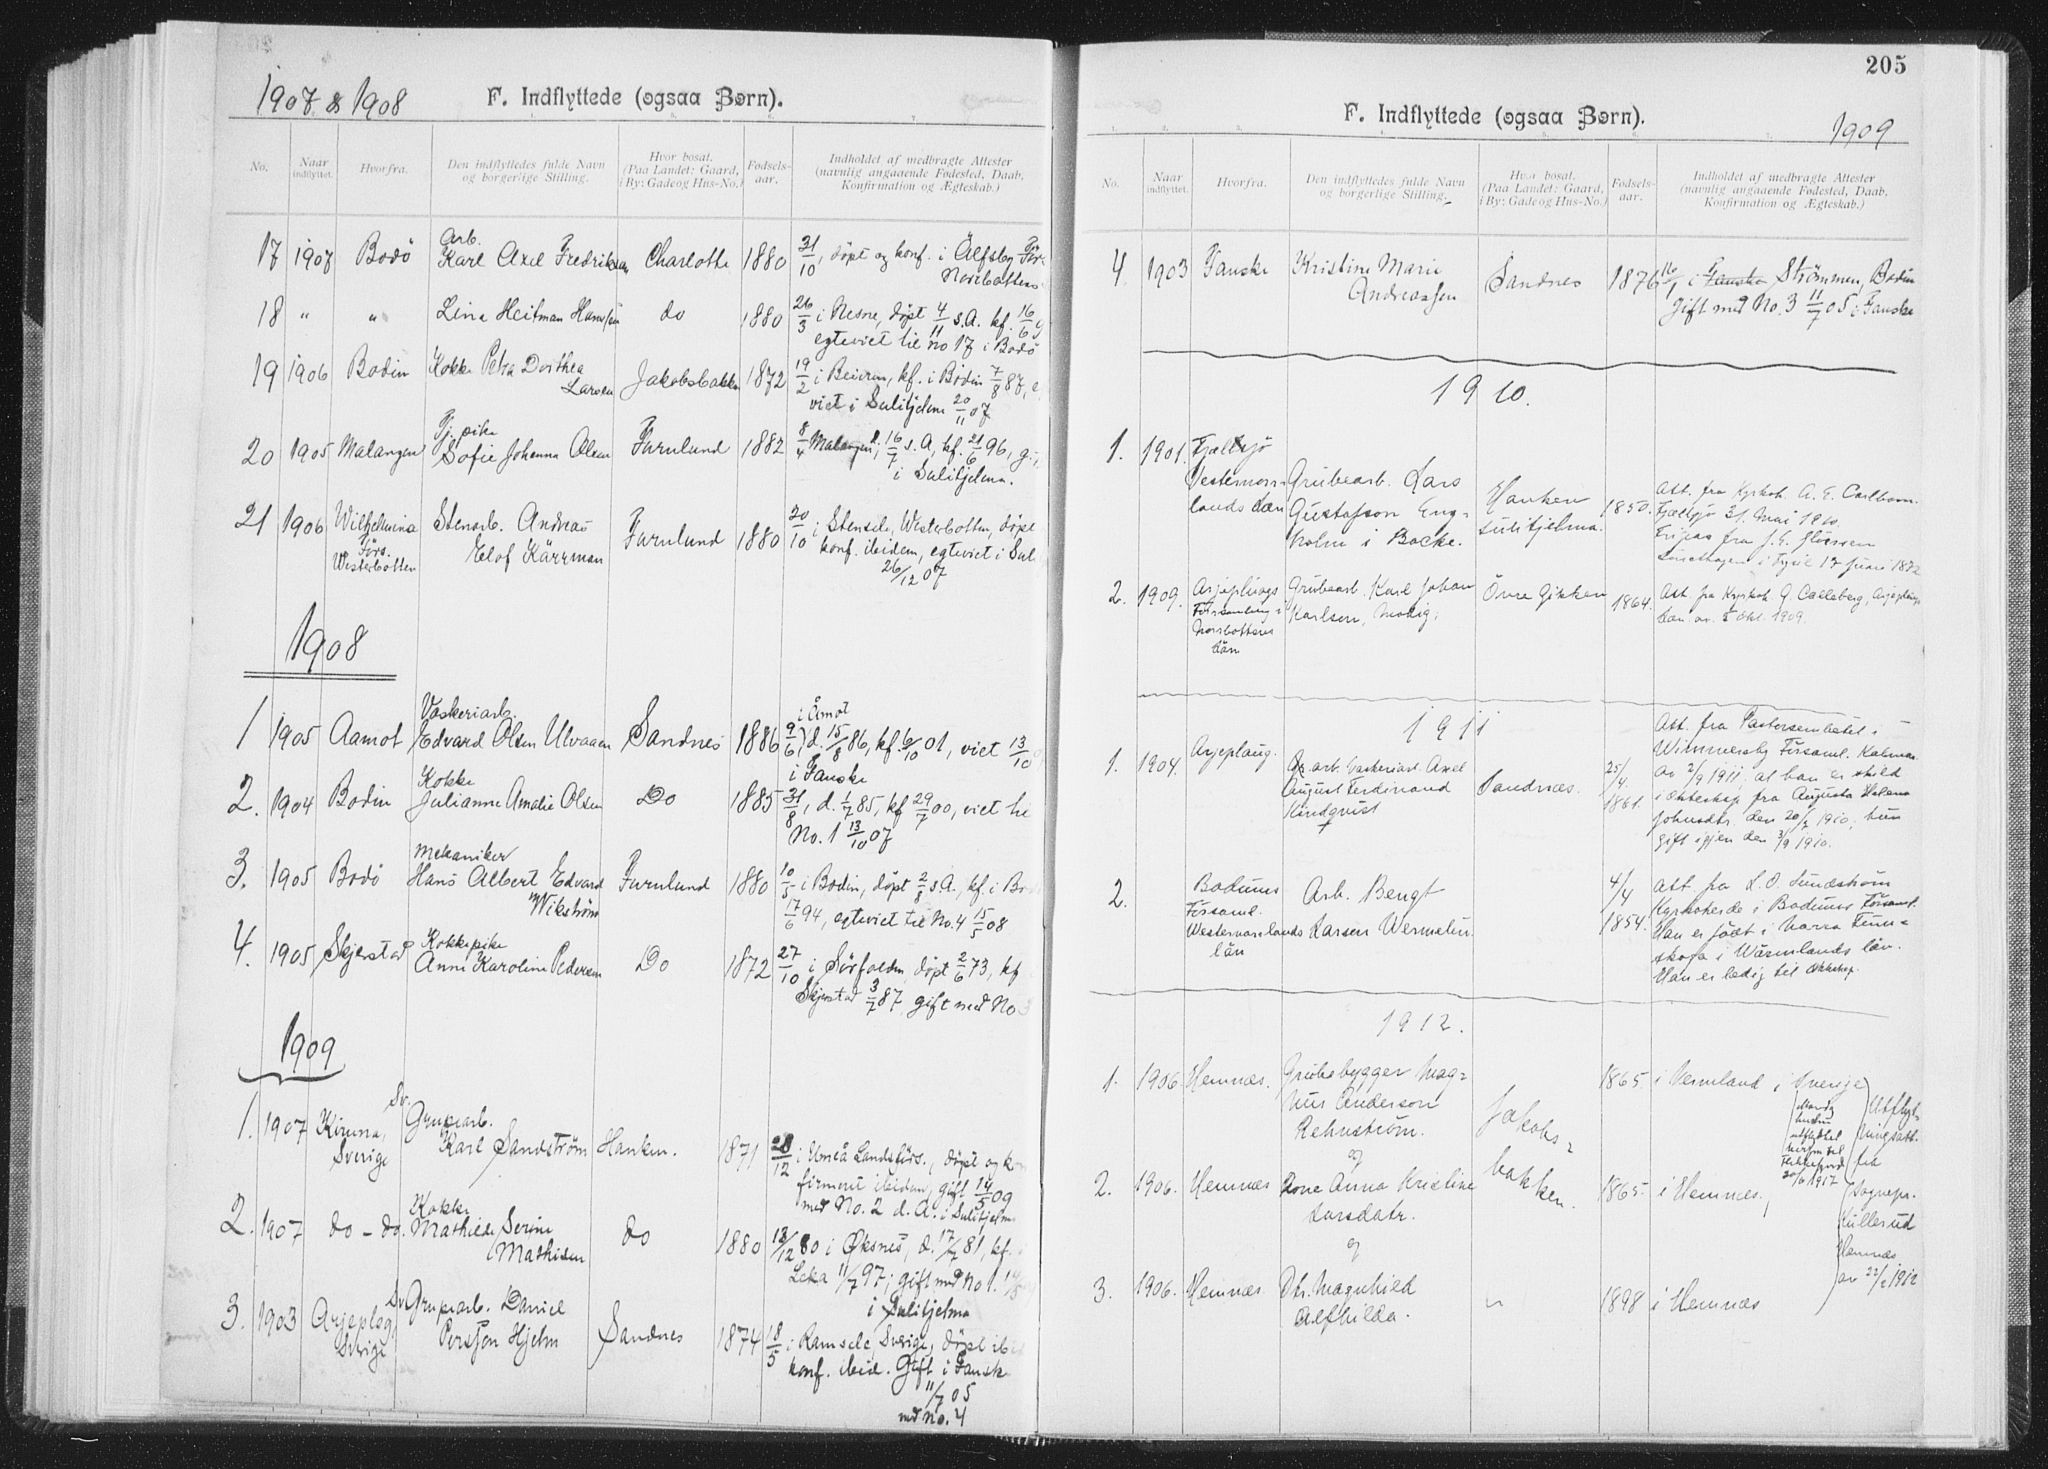 1907 & 1908
F. Indflyttede (ogsaa Børn).
No.
Naar indflyttet.
Hvorfra.
Den indflyttedes fulde Navn og borgerlige Stilling.
Hvor bosat. (Paa Landet: Gaard, i By: Gade og Hus-No.)
Fødsels-aar.
Indholdet af medbragte Attester (navnlig angaaende Fødested, Daab, Konfirmation og Ægteskab.)
17 1907 Bodö Arb. Karl Axel Fredriksen Charlotta 1880 31/10, döpt og konf. i Älfsby För.
Norrbottens
18 " " Lina Heitman Hansen do 1880 26/3 i Nesne, döpt 4/11 s.A. kf. 16/6
egteviet til No 17 i Bodö
19 1906 Bodin Kokke Petra Dorthea Larsen Jakobsbakken 1872 19/2 i Beiern, kf. i Bodin 7/8 87,
viet i Sulitjelma 20/11 07
20 1905 Malangen Tj. pike Sofie Johanna Olsen Furulund 1882 8/4 Malangen, d. 16/7 s.A, kf. 21/6 96, g.
i Sulitjelma.
21 1906 Wilhelmina Förs. Westerbotten Stenarb. Andreas Elof Kärrman Furulund 1880 20/10 i Stensele, Westerbotten, döpt
konf. ibidem, egteviet i Sul
26/12 07
1908
1 1905 Aamot Vaskeriarb. Edvard Olsen Ulvaaen Sandnes 1886 9/6 i Åmot, d. 15/8 86, kf. 6/10 01, viet 13/10
i Fauske
2. 1904 Bodin Kokke Julianne Amalie Olsen Do 1885 31/8, d. 1/7 85, kf 29/7 00, viet
No. 1 13/10 07
3. 1905 Bodö Mekaniker Hans Albert Edvard Wikström Furulund 1880 10/5 i Bodin, döpt 2/8 s.A., kf. i Bo
17/6 94, egteviet til No. 4 15/5 08
4. 1905 Skjerstad Kokkepike Anne Karoline Pedersen Do 1872 27/10 i Sörfolden, döpt 2/6 73, kf
Skjerstad 3/7 87 gift med No 3
1909
1. 1907 Kiruna, Sverige Sv. Grubearb. Karl Sandström Hanken. 1871 28/12 i Umeå Landsförs., döpt og kon
firmeret ibidem, gift 14/5 09
med No. 2 d. A. i Sulitjelm
2. 1907 do - do. Kokke Mathilde Serine Mathisen do 1880 13/12 80 i Öksnes, d. 17/7 81, kf.
Leka 11/7 97; gift med No 1. 14/5
i Sulitjelma
3. 1903 Arjeplog, Sverige Sv. Grubearb. Daniel Persson Hjelm Sandnes 1874 18/5 i Ramsele, Sverige, döpt ibid
konf. ibid. Gift i Fausk
11/7 05
md No. 4
205
F. Indflyttede (ogsaa Børn).
1909
No.
Naar indflyttet.
Hvorfra.
Den indflyttedes fulde Navn og borgerlige Stilling.
Hvor bosat. (Paa Landet: Gaard, i By: Gade og Hus-No.)
Fødsels-aar.
Indholdet af medbragte Attester (navnlig angaaende Fødested, Daab, Konfirmation og Ægteskab.)
4 1903 Fauske Kristine Marie Andreassen Sandnes 1876 16/1 i Fauske Strömmen, Bodin
Gift med No. 3 11/7 05 i Fauske
1910.
1. 1901. Fjällsjö Vesternorrlands Län Grubearb. Lars Gustafson Engholm i Backe. Hanken Sulitjelma. 1850. Att. fra Kyrkoh. A. E. Carlbom.
Fjällsjö 31. Mai 1910.
2. 1909. Arjeplougs Församling i Norrbottens län Grubearb. Karl Johan Karlsen, Modig. Övre Gikken 1864. Att. fra Kyrkoh. G. Calleberg, Arjeploug
1911
1. 1904. Arjeploug. Gr. arb. Vaskeriarb. Axel August Ferdinand Kindquist Sandnes. 25/4. 1861. Att. fra Pastorsembetet i
Wimmerby Församl. Kalmar
av 2/9 1911, at han er skild
i ekteskap fra Augusta Helena
Johnsdtr. den 20/2 1910, hun
gift igjen den 3/9 1910.
2. Bodums Församl. Westernorrlands län Arb. Bengt Larsen Wermelin. 4/4 1854. Att. fra L. O. Sundström
Kyrkoherde i Bodums Församl.
Han er födt i Norra
skoga i Wärmlands län.
Han er ledig til ekteskap.
1912.
1. 1906. Hemnæs. Grubebygger Magnus Anderson Rehnström. Jakobsbakken. 1865. i Vermland i Sverige
og
2. 1906. Hemnæs Kone Anna Kristine Larsdatr. 1865. i Hemnæs.
og
3. 1906. Hemnæs. Dtr. Magnhild Alfhilda. " 1898 i Hemnæs
Utflytningsatt. fra Sognepr. Kullerud Hemnæs av 22/2 1912